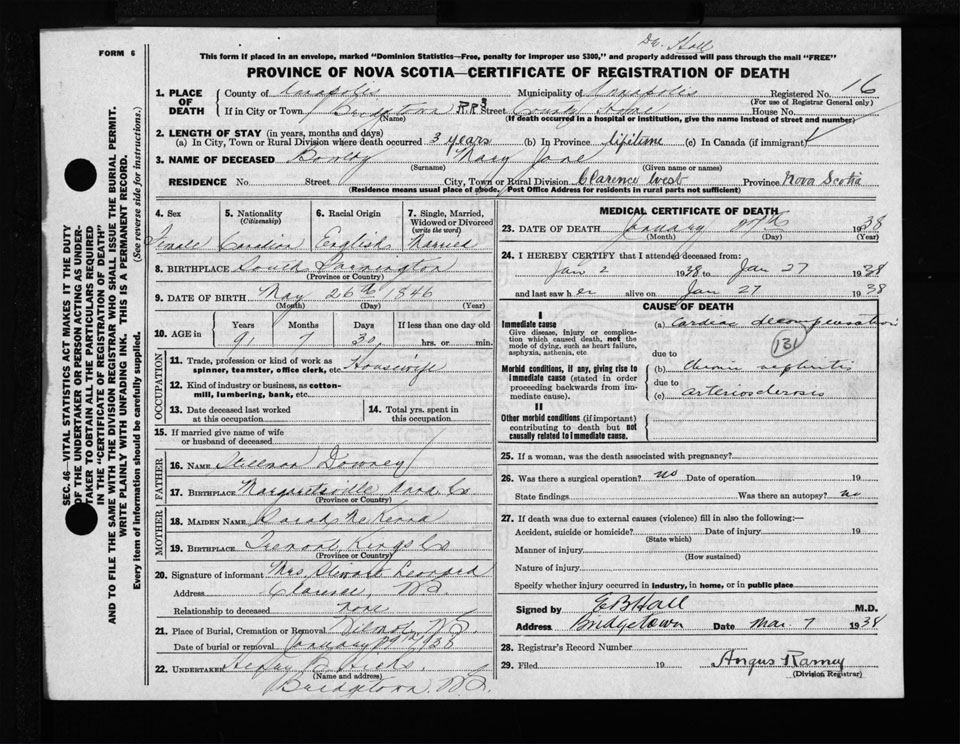 Dr. Hall
FORM 6
This form if placed in an envelope, marked "Dominion Statistics—Free, penalty for improper use $300," and properly addressed will pass through the mail "FREE"
PROVINCE OF NOVA SCOTIA—CERTIFICATE OF REGISTRATION OF DEATH
1. PLACE OF DEATH
County of Annapolis Municipality of Annapolis Registered No. 16
(For use of Registrar General only)
If in City or Town Bridgetown R.R 3 Street County Home House No.
(Name) (If death occurred in a hospital or institution, give the name instead of street and number)
2. LENGTH OF STAY (in years, months and days)
(a) In City, Town or Rural Division where death occurred 3 years (b) In Province lifetime (c) In Canada (if immigrant)
3. NAME OF DECEASED Mary Jane
(Surname) (Given name or names)
RESIDENCE No. Street City, Town or Rural Division Clarence West Province Nova Scotia
(Residence means usual place of abode. Post Office Address for residents in rural parts not sufficient)
4. Sex 5. Nationality (Citizenship) 6. Racial Origin 7. Single, Married, Widowed or Divorced (write the word)
Female Canadian English Married
8. BIRTHPLACE South
(Province or Country)
9. DATE OF BIRTH May 26th 1846
(Month) (Day) (Year)
10. AGE in Years Months Days If less than one day old
91 7 30 hrs. or min.
OCCUPATION
11. Trade, profession or kind of work as spinner, teamster, office clerk, etc. Housewife
12. Kind of industry or business, as cotton-mill, lumbering, bank, etc.
13. Date deceased last worked at this occupation
14. Total yrs. spent in this occupation
15. If married give name of wife or husband of deceased
FATHER
16. NAME Stillman Downey
17. BIRTHPLACE Margaretsville Anna. Co
(Province or Country)
MOTHER
18. MAIDEN NAME Sarah McKenna
19. BIRTHPLACE Kings Co
(Province or Country)
20. Signature of informant Mrs Stewart Leonard
Address Clarence, N.S.
Relationship to deceased none
21. Place of Burial, Cremation or Removal Wilmot N.S.
Date of burial or removal January 29th 1938
22. UNDERTAKER Henry B. Hicks
(Name and address)
Bridgetown N.S.
MEDICAL CERTIFICATE OF DEATH
23. DATE OF DEATH January 27th 1938
(Month) (Day) (Year)
24. I HEREBY CERTIFY that I attended deceased from:
Jan 2 1938 to Jan 27 1938
and last saw her alive on Jan 27 1938
CAUSE OF DEATH
I
Immediate cause
Give disease, injury or complication which caused death, not the mode of dying, such as heart failure, asphyxia, asthenia, etc
(a) Cardiac decompensation
131
due to
Morbid conditions, if any, giving rise to immediate cause (stated in order proceeding backwards from immediate cause).
(b) chronic nephritis
due to
(c) arteriosclerosis
II
Other morbid conditions (if important) contributing to death but not causally related to immediate cause.
25. If a woman, was the death associated with pregnancy?
26. Was there a surgical operation? no Date of operation 19
State findings Was there an autopsy? no
27. If death was due to external causes (violence) fill in also the following:—
Accident, suicide or homicide? Date of injury 19
(State which)
Manner of injury
(How sustained)
Nature of injury
Specify whether injury occurred in industry, in home, or in public place
Signed by E B Hall M.D.
Address Bridgetown Date Mar 7 1938
28. Registrar's Record Number
29. Filed 19 Angus Ramey
(Division Registrar)
SEC. 46—VITAL STATISTICS ACT MAKES IT THE DUTY
OF THE UNDERTAKER OR PERSON ACTING AS UNDER-
TAKER TO OBTAIN ALL THE PARTICULARS REQUIRED
IN THE "CERTIFICATE OF REGISTRATION OF DEATH"
AND TO FILE THE SAME WITH THE DIVISION REGISTRAR WHO SHALL ISSUE THE BURIAL PERMIT.
WRITE PLAINLY WITH UNFADING INK. THIS IS A PERMANENT RECORD.
Every item of information should be carefully supplied. (See reverse side for instructions.)